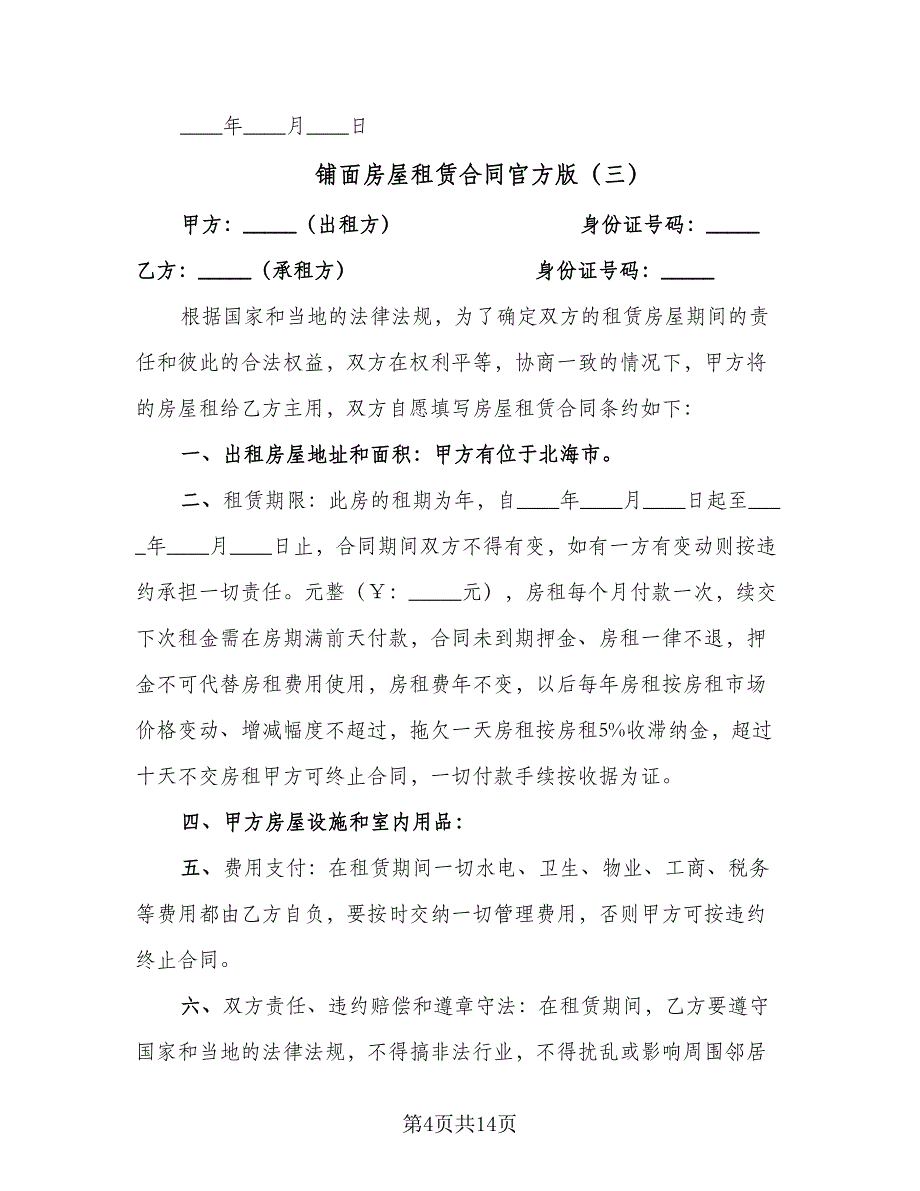 ____年____月____日
铺面房屋租赁合同官方版（三）
甲方：_____（出租方） 身份证号码：_____
乙方：_____（承租方） 身份证号码：_____
根据国家和当地的法律法规，为了确定双方的租赁房屋期间的责
任和彼此的合法权益，双方在权利平等，协商一致的情况下，甲方将
的房屋租给乙方主用，双方自愿填写房屋租赁合同条约如下：
一、出租房屋地址和面积：甲方有位于北海市。
二、租赁期限：此房的租期为年，自____年____月____日起至___
_年____月____日止，合同期间双方不得有变，如有一方有变动则按违
约承担一切责任。元整（￥：_____元），房租每个月付款一次，续交
下次租金需在房期满前天付款，合同未到期押金、房租一律不退，押
金不可代替房租费用使用，房租费年不变，以后每年房租按房租市场
价格变动、增减幅度不超过，拖欠一天房租按房租5%收滞纳金，超过
十天不交房租甲方可终止合同，一切付款手续按收据为证。
四、甲方房屋设施和室内用品：
五、费用支付：在租赁期间一切水电、卫生、物业、工商、税务
等费用都由乙方自负，要按时交纳一切管理费用，否则甲方可按违约
终止合同。
六、双方责任、违约赔偿和遵章守法：在租赁期间，乙方要遵守
国家和当地的法律法规，不得搞非法行业，不得扰乱或影响周围邻居
第4页共14页